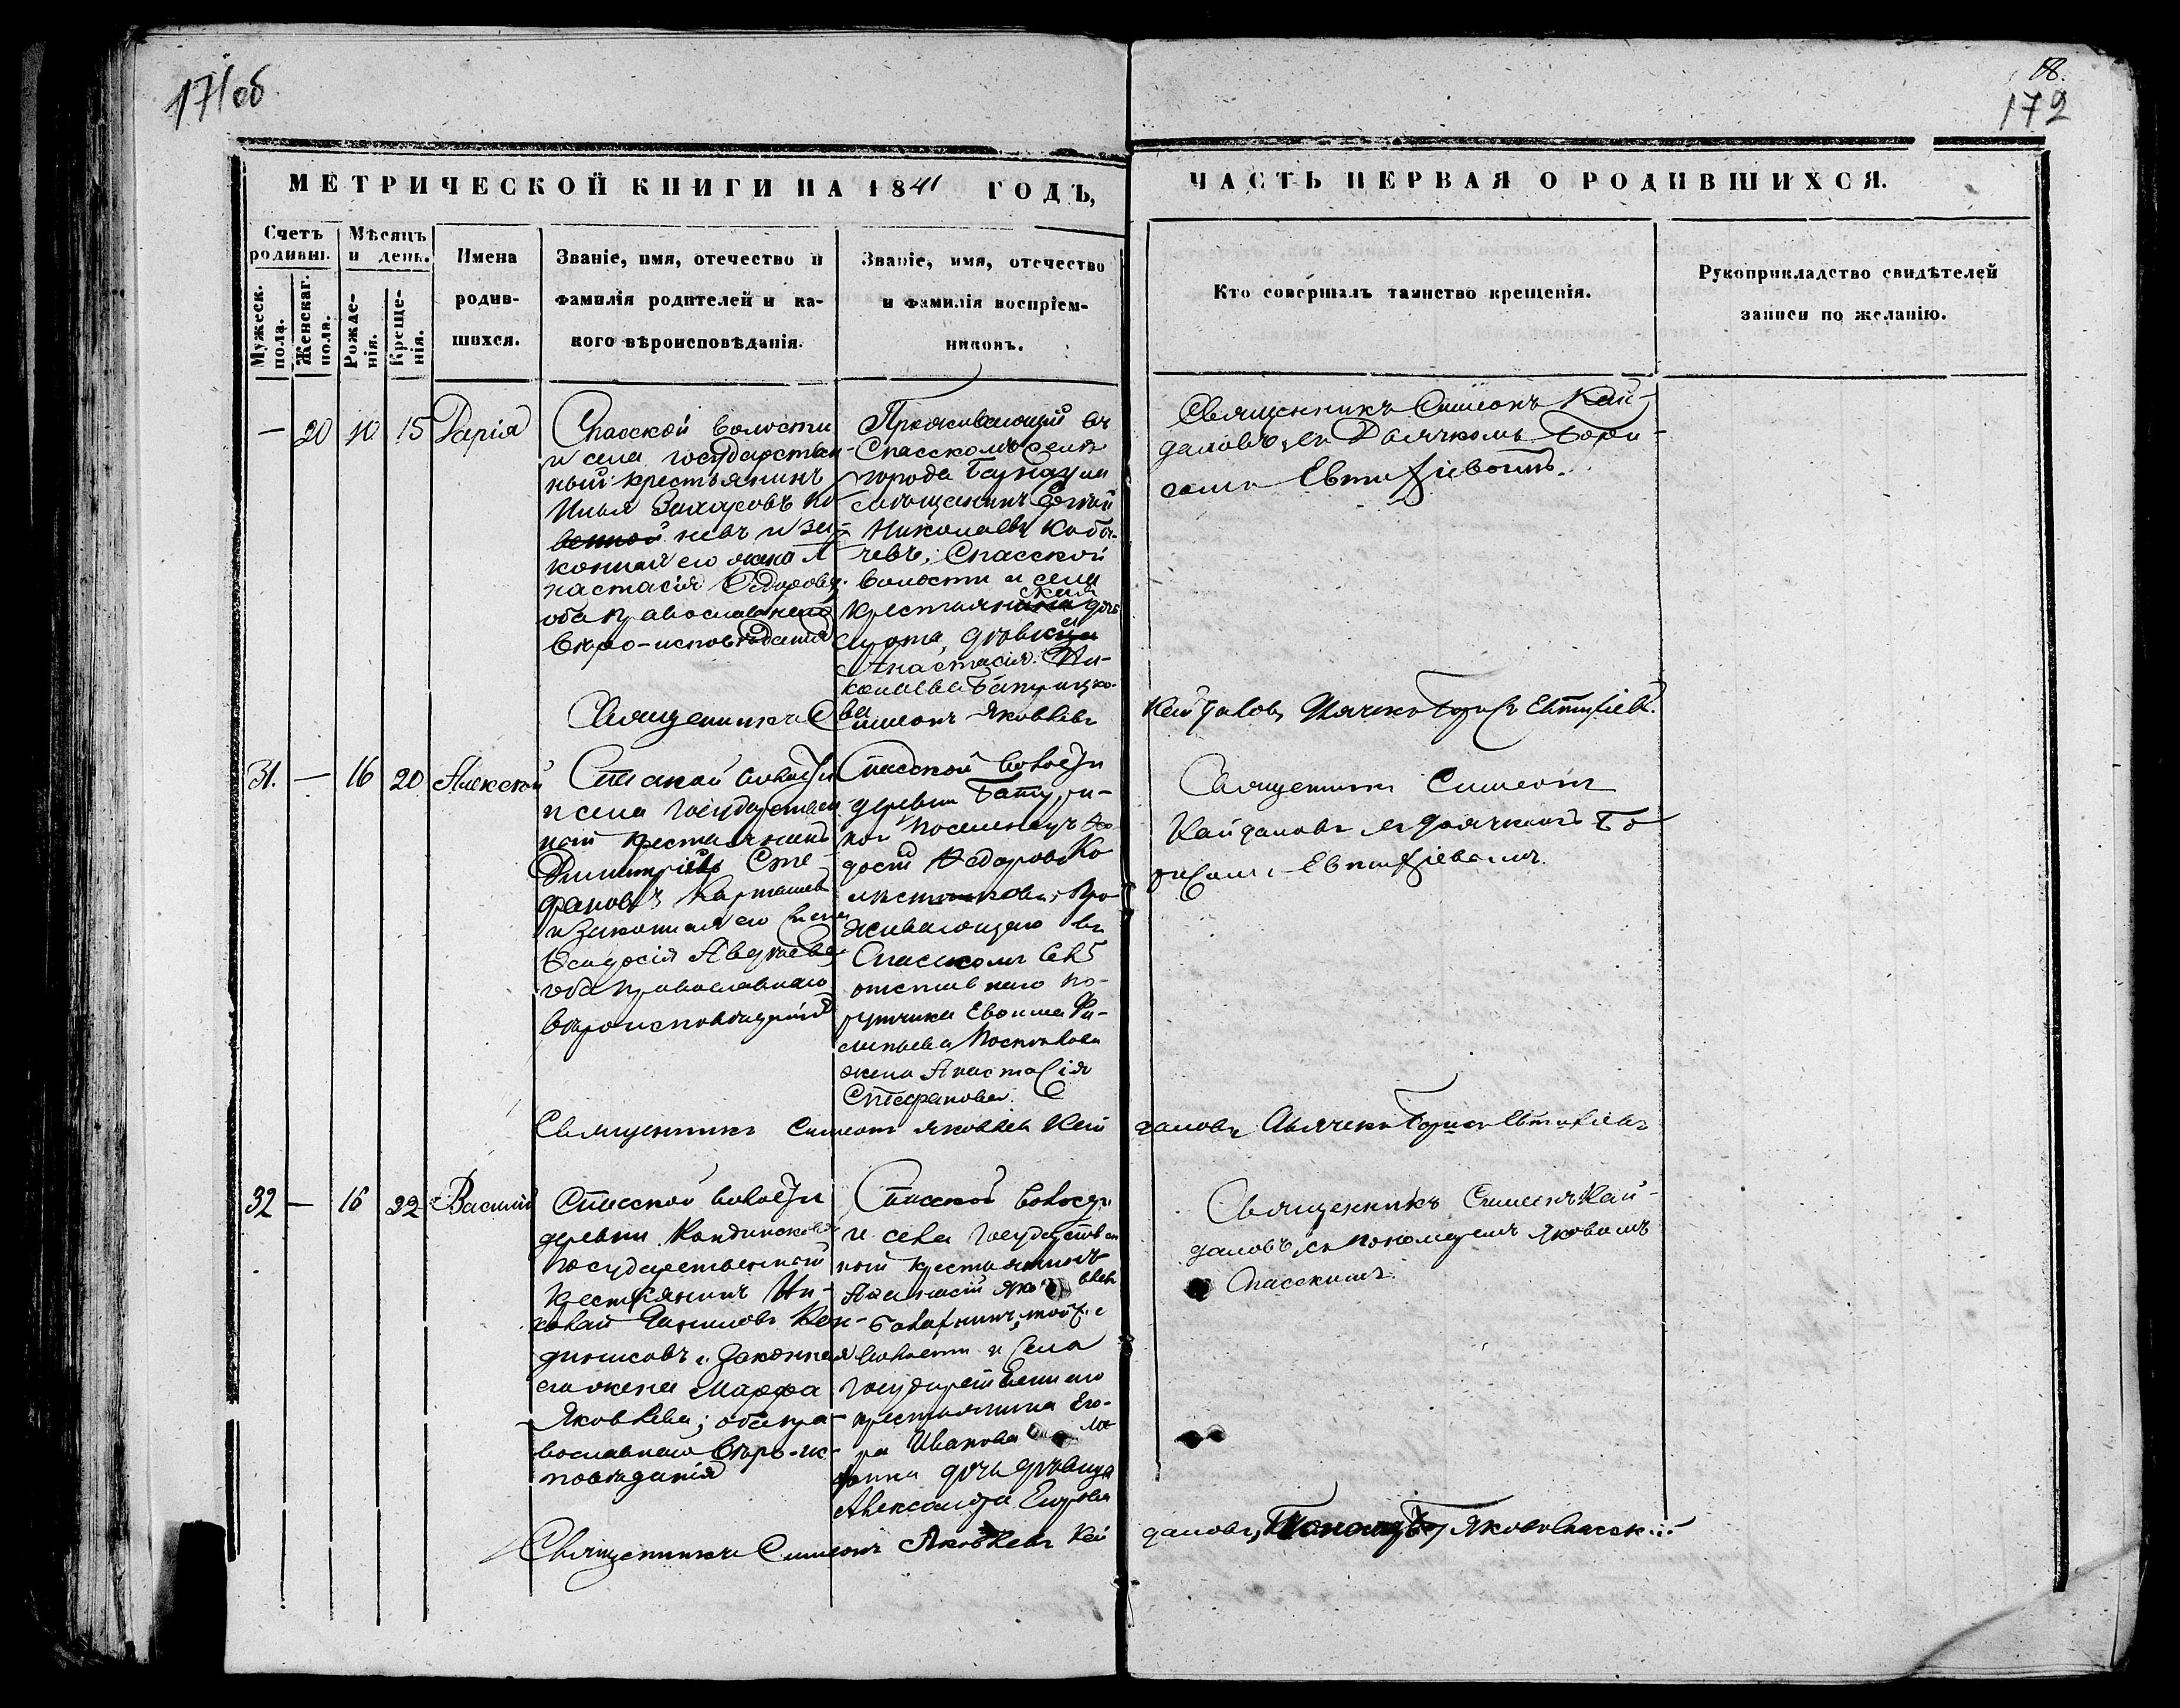 171об
18.
172
МЕТРИЧЕСКОЙ КНИГИ НА 1841 ГОДЪ,
ЧАСТЬ ПЕРВАЯ О РОДИВШИХСЯ.
Счетъ родивш.
Мужеск. пола.
Женскаг. пола.
Мѣсяцъ и день.
Рожде-
нія.
Креще-
нія.
Имена
родив-
шихся.
Званіе, имя, отечество и
фамилія родителей и ка-
кого вѣроисповѣданія.
Званіе, имя, отечество
и фамилія воспріем-
никовъ.
Кто совершалъ таинство крещенія.
Рукоприкладство свидѣтелей
записи по желанію.
— 20 10 15 Дарія
Спасской волости
и села государствен-
ный крестьянинъ
Илья Захаровъ
невъ и за-
конная его жена А-
настасія Ѳедорова
оба православнаго
вѣро-исповѣданія
Проживающій въ
Спасскомъ селѣ
города
Николаевъ
Спасской
волости и села
крестьянская дочь
сирота, дѣвица
Анастасія Ни-
колаева
Священникъ Симеонъ Кай-
даловъ, съ Дьячкомъ Бори-
сомъ Евтифіевымъ.
Священникъ Симеонъ Яковлевъ Кайдаловъ, Дьячекъ Борисъ Евтифіевъ.
31. — 16 20 Алексей
Спаской волости
и села государствен
ной крестьянинъ
Димитрій Сте-
фановъ Карташевъ
и законная его жена
Ѳеодосія
оба православнаго
вѣроисповѣданія
Спасской волости
деревни Батури-
ной поселенецъ Ѳе
досій Ѳедоровъ Ко
про-
живающаго въ
Спасскомъ селѣ
отставнаго по-
ручика Евфима Фи-
липьева
жена Анастасія
Стефанова.
Священникъ Симеонъ
Кайдаловъ съ дьячкомъ Бо
рисомъ Евтифіевымъ.
Священникъ Симеонъ Яковлевъ Кайдаловъ Дьячекъ Борисъ Евтифіевъ
32 — 16 22 Василій
Спасской волости
деревни Кандинской
государственной
крестьянинъ Ни-
колай Даниловъ Кан-
динсковъ и законная
его жена Марфа
Яковлева; оба пра-
вославнаго вѣро-ис-
повѣданія
Спасской волости
и села государствен
ной крестьянинъ
Афанасій Яковлевъ
той же
волости и села
государственнаго
крестьянина Его-
ра Иванова
дочь дѣвица
Александра Егорова
Священникъ Симеонъ Кай-
даловъ, съ пономаремъ Яковомъ
Спасскимъ.
Священникъ Симеонъ Яковлевъ Кайдаловъ, Пономарь Яковъ Спасскій